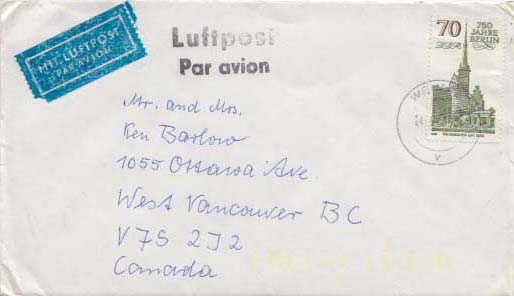 MIT LUFTPOST
PAR AVION
Luftpost
Par avion
70
750
JAHRE
BERLIN
Mr. and Mrs.
Ken Barlow
1055 Ottawa Ave.
West Vancouver BC
V7S 2J2
Canada